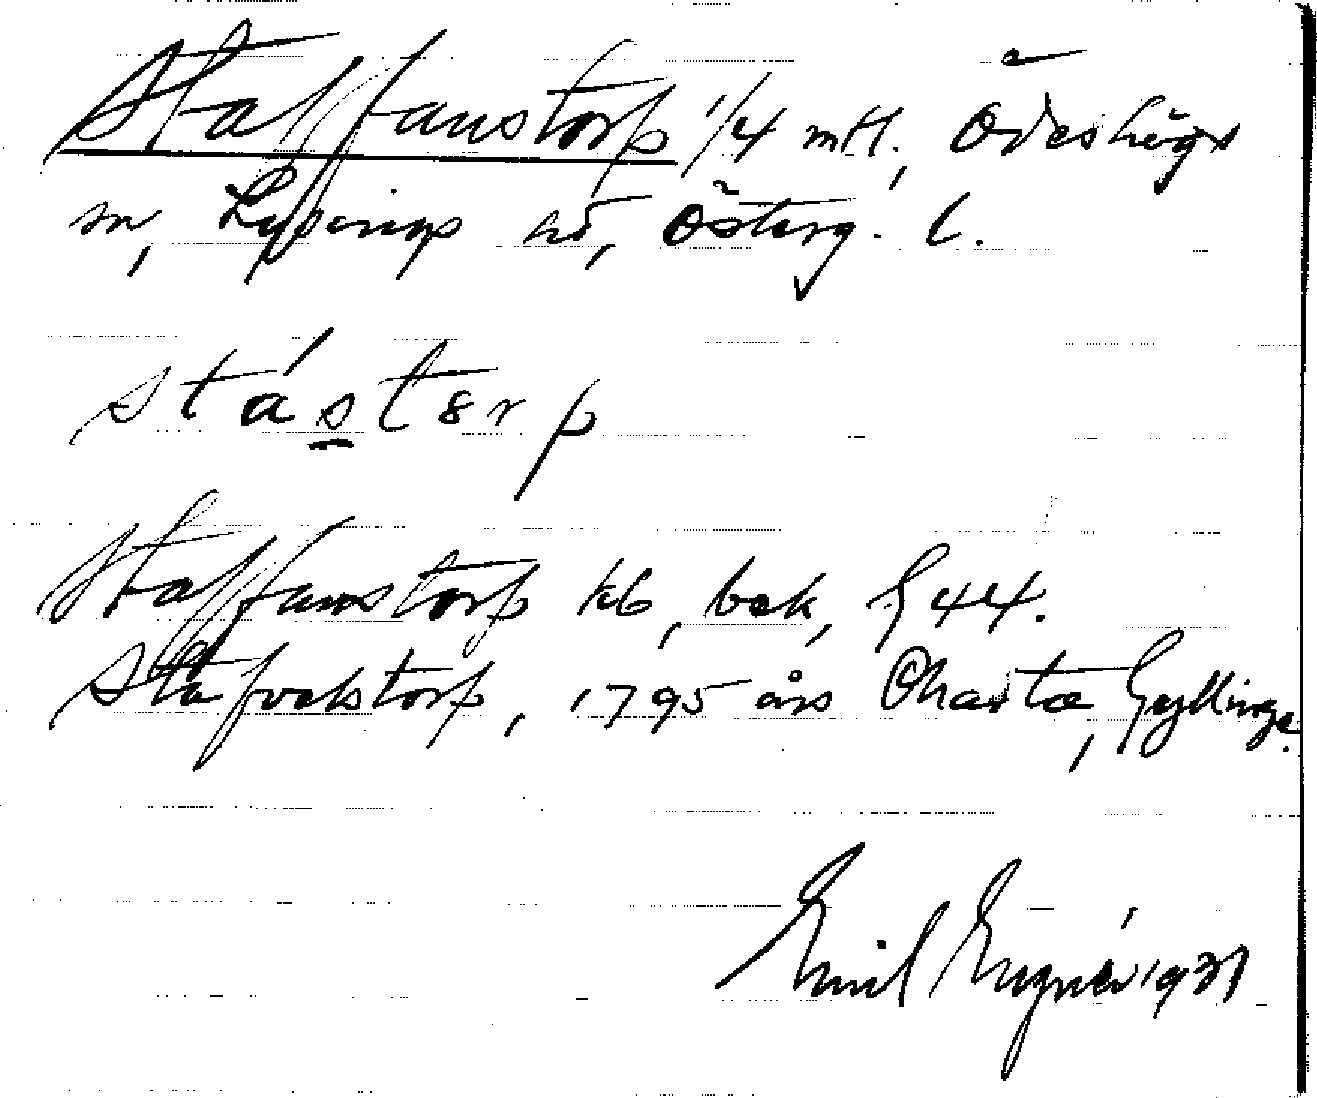 Staffanstorp 1/4 mtl., Ödeshögs
sn, Lysings hd, Österg. l.
stástorp
Staffanstorp kb, bok, G 44.
Stafvokstorp, 1795 års Charta, Gyllinge.
Emil 1931